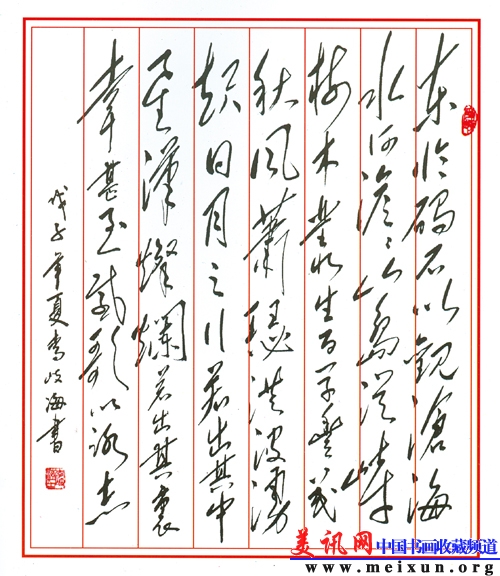 东临碣石以觀滄海
水何澹々山島竦峙
树木叢生百草豐茂
秋風蕭瑟洪波湧
起日月之行若出其中
星漢燦爛若出其裏
幸甚至哉歌以詠志
戊子年夏李岐海書
美讯网 中国书画收藏频道
www.meixun.org